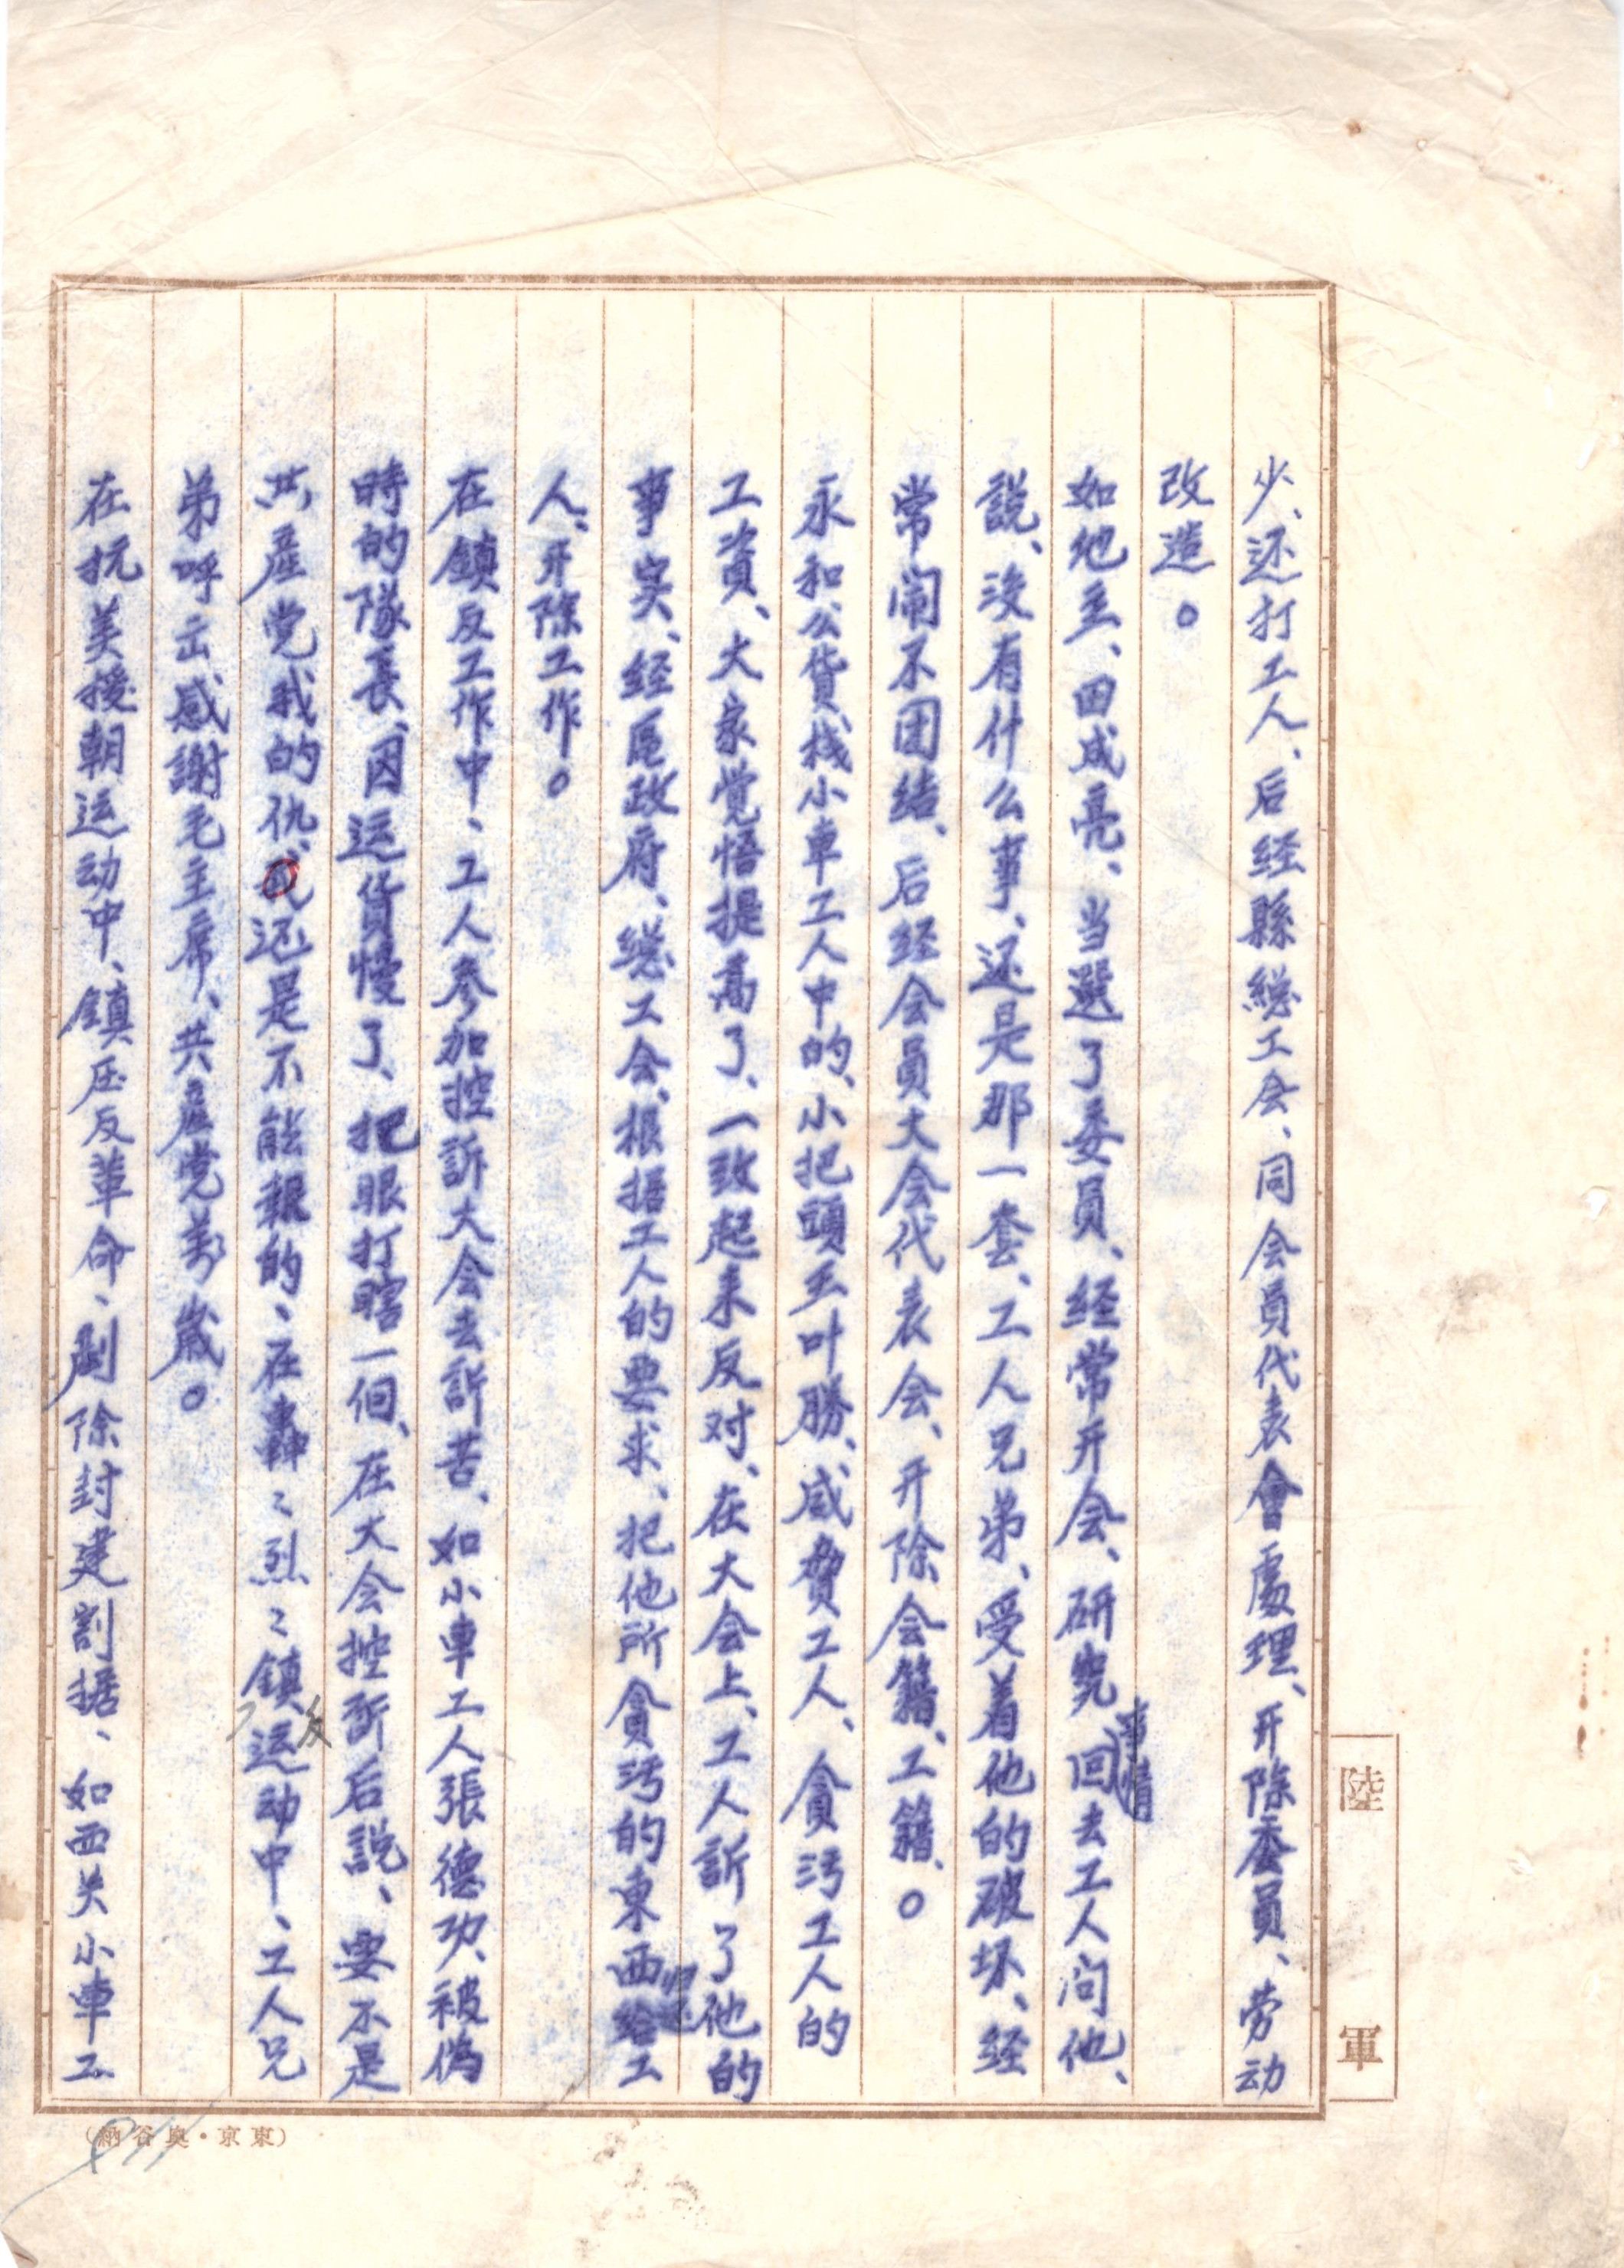 少、还打工人、后经縣総工会、同会員代表會處理、开除委員、劳动
改造。
如他主、田成亮、当選了委員、经常开会、研究事情回去工人问他、
說、没有什么事、还是那一套、工人兄弟、受着他的破坏、经
常闹不团结、后经会員大会代表会、开除会籍、工籍、。
永和公货栈小車工人中的、小把頭王叶勝、剥費工人、貪污工人的
工資、大家觉悟提高了、一致起来反对、在大会上、工人訴了他的
事实、经區政府、総工会、根据工人的要求、把他所貪污的東西归还給工
人、开除工作。
在鎮反工作中、工人参加控訴大会去訴苦、如小車工人張德功、被偽
時的隊長、因运货慢了、把眼打瞎一個、在大会控訴后說、要不是
共産党我的仇、还是不能報的、在轟々烈々鎮反运动中、工人兄
弟呼出感謝毛主席、共産党萬歲。
在抗美援朝运动中、鎮压反革命、剷除封建割据、如西关小車工
陸軍
(東京・奥谷納)